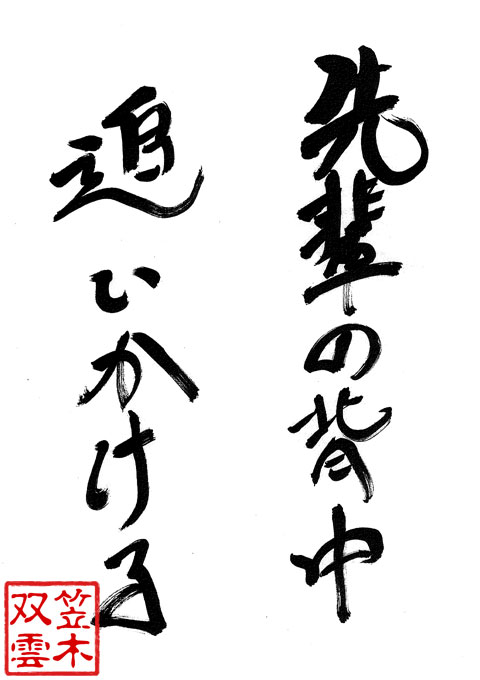 先輩の背中
追いかける
笠木
双雲